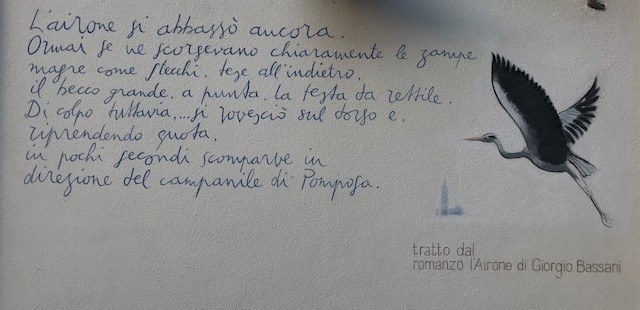 L'airone si abbassò ancora.
Ormai se ne scorgevano chiaramente le zampe
magre come stecchi, tese all'indietro,
il becco grande, a punta, la testa da rettile.
Di colpo tuttavia,...si rovesciò sul dorso e,
riprendendo quota,
in pochi secondi scomparve in
direzione del campanile di Pomposa.
tratto dal
romanzo l'Airone di Giorgio Bassani